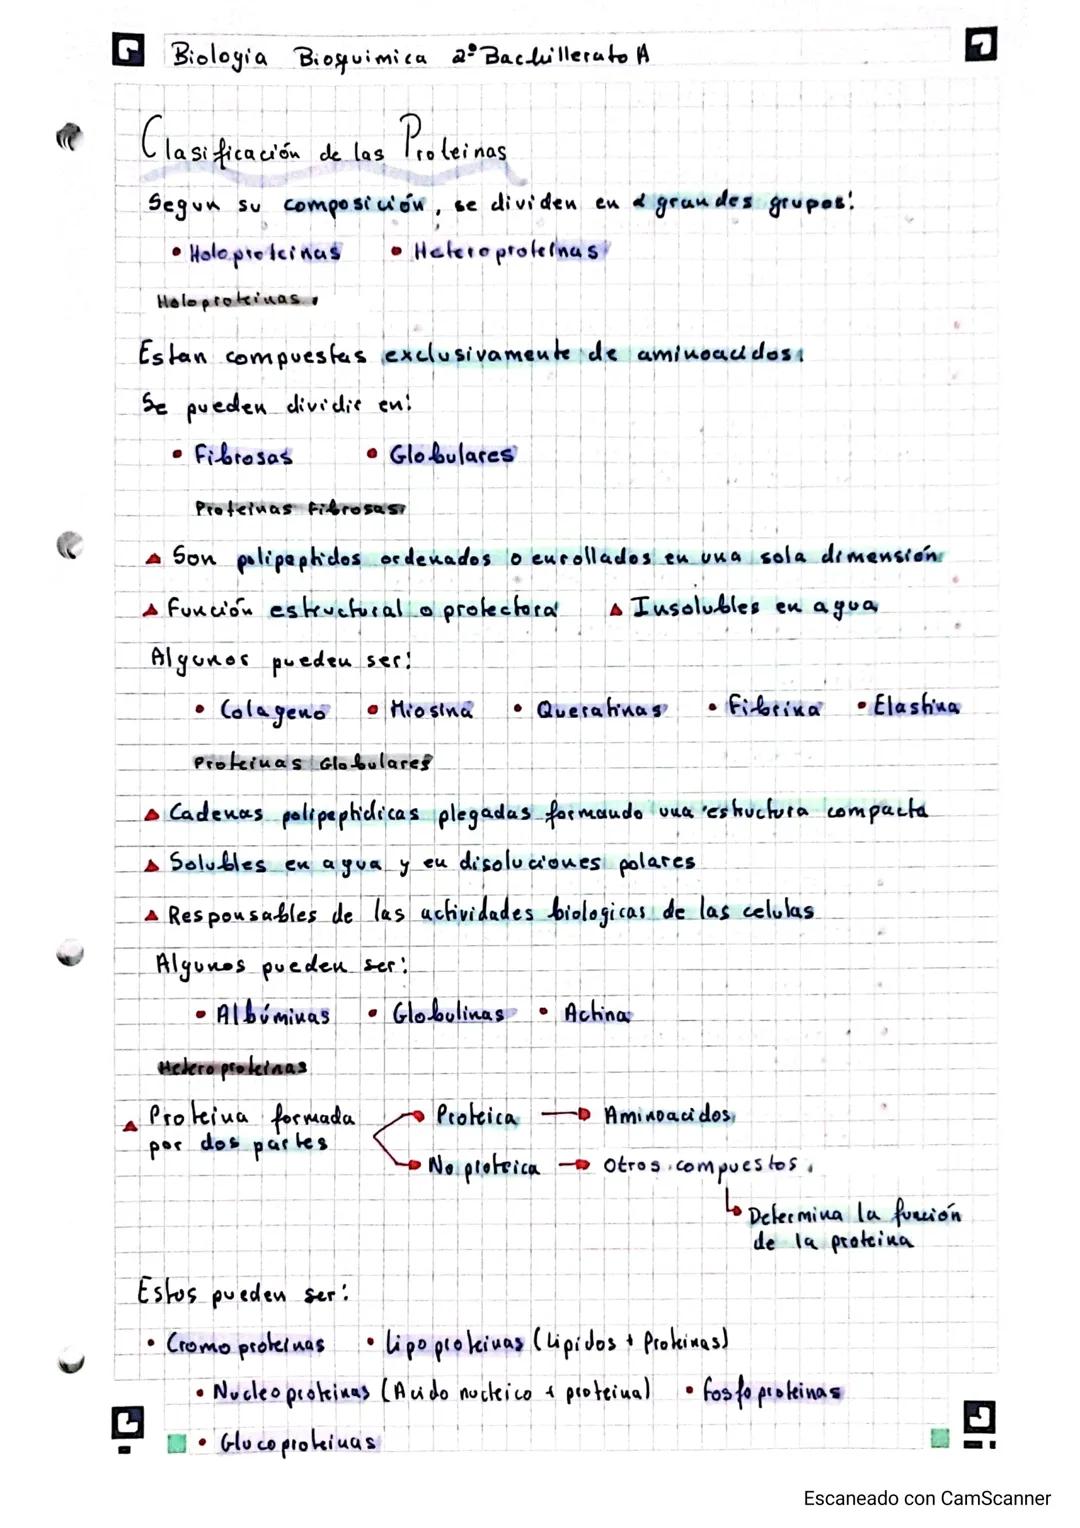 Biologia Bioquimica 2º Bachillerato A
Clasificación de las Proteinas
Segun su composición, se dividen en 2 grandes grupos:
• Holoproteinas • Heteroproteinas
Holoproteinas.
Estan compuestas exclusivamente de aminoacidos.
Se pueden dividir en:
• Fibrosas • Globulares
Proteinas Fibrosas
▲ Son polipeptidos ordenados o enrollados en una sola dimensión
▲ Función estructural o protectora ▲ Insolubles en agua
Algunos pueden ser:
• Colageno • Miosina • Queratinas • Fibrina • Elastina
Proteinas Globulares
▲ Cadenas polipeptidicas plegadas formando una estuctura compacta
▲ Solubles en agua y en disoluciones polares
▲ Responsables de las actividades biologicas de las celulas
Algunos pueden ser:
• Albúminas • Globulinas • Actina
Heteroproteinas
▲ Proteina formada por dos partes
Proteica → Aminoacidos
No proteica → Otros compuestos.
↳ Determina la función
de la proteina
Estos pueden ser:
• Cromoproteinas • Lipoproteinas (Lipidos + Proteinas)
• Nucleoproteinas (Acido nucleico + proteina) • fosfoproteinas
• Glucoproteinas
Escaneado con CamScanner